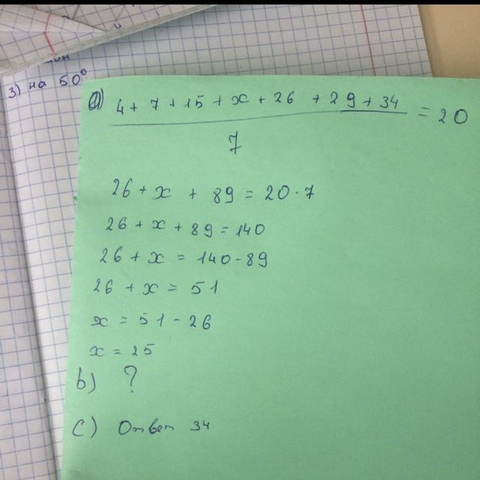 3) на 50°
а) 4 + 7 + 15 + x + 26 + 29 + 34 = 20
7
26 + x + 89 = 20 · 7
26 + x + 89 = 140
26 + x = 140 - 89
26 + x = 51
x = 51 - 26
x = 25
b) ?
c) Ответ 34